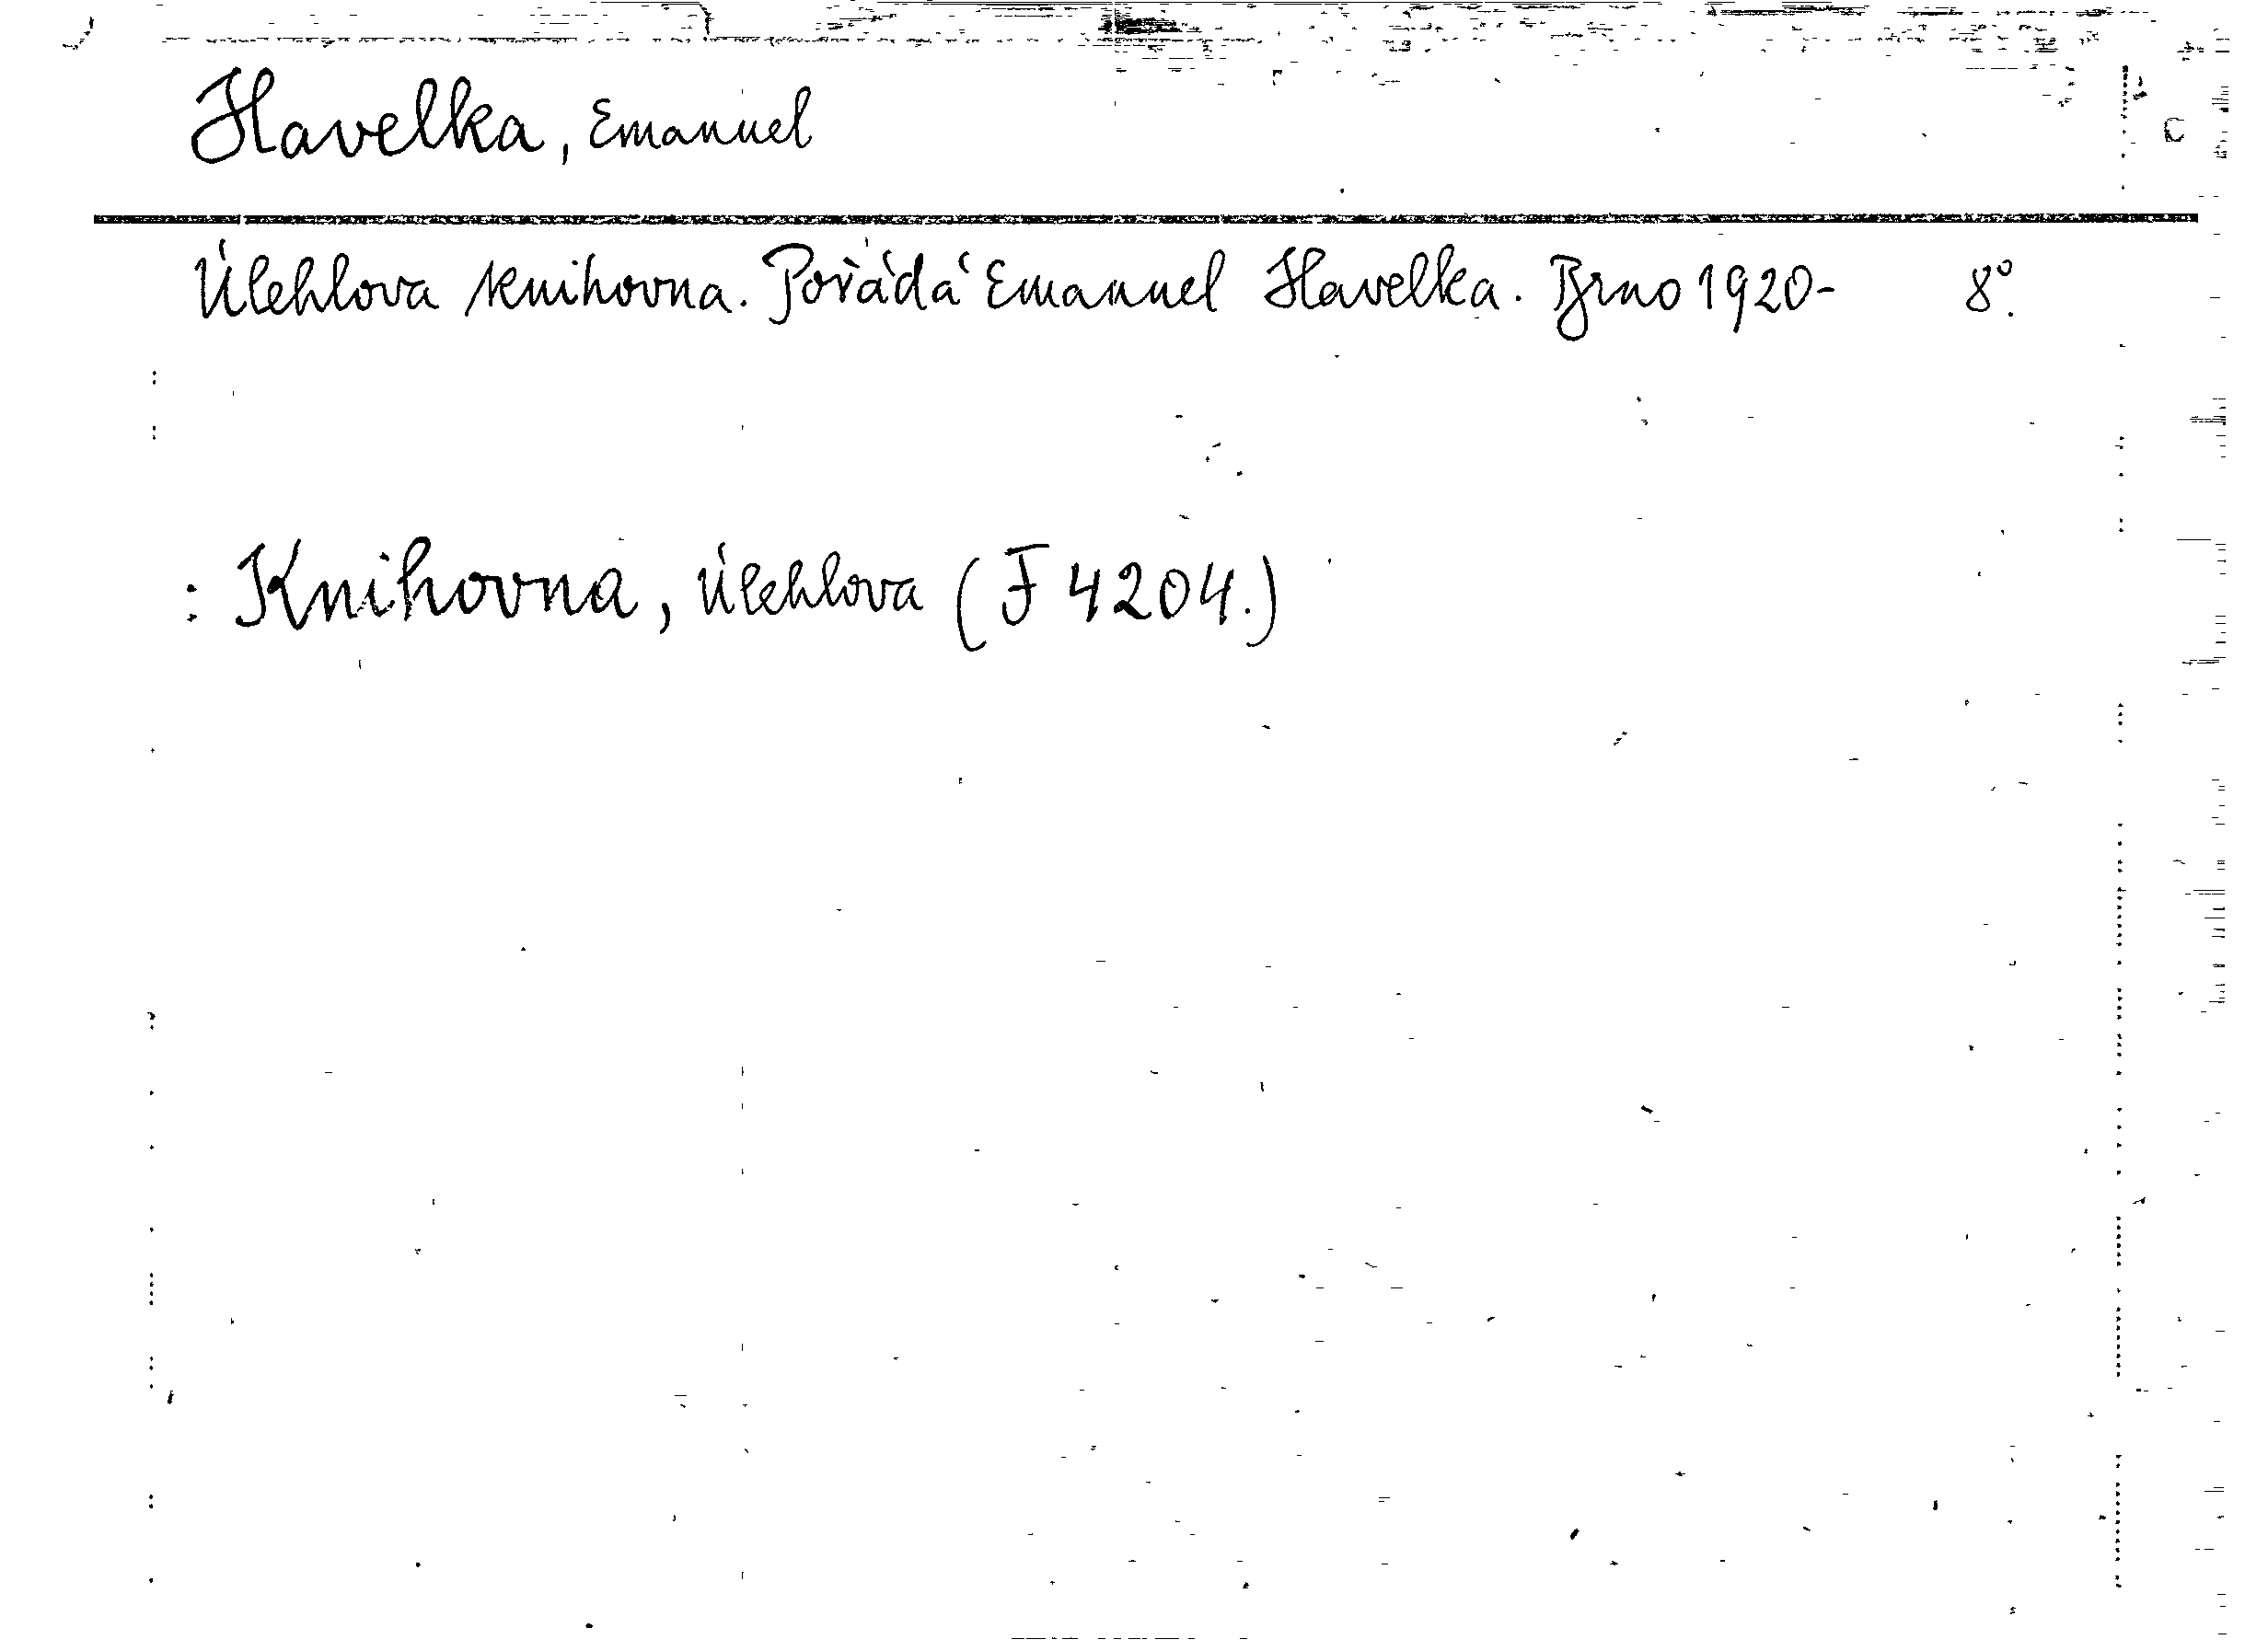 Havelka, Emanuel
Úlehlova knihovna. Pořádá Emanuel Havelka. Brno 1920- 8°.
: Knihovna, Úlehlova (F 4204.)